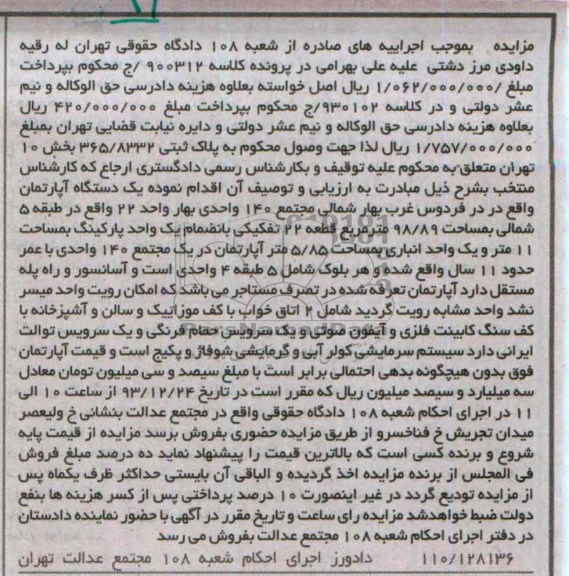 مزایده بموجب اجراییه های صادره از شعبه ۱۰۸ دادگاه حقوقی تهران له رقیه
داودی مرز دشتی علیه علی بهرامی در پرونده کلاسه ۹۰۰۳۱۲ /ج محکوم بپرداخت
مبلغ /۱/۰۶۲/۰۰۰/۰۰۰ ریال اصل خواسته بعلاوه هزینه دادرسی حق الوکاله و نیم
عشر دولتی و در کلاسه ۹۳۰۱۰۲/ج محکوم بپرداخت مبلغ ۴۲۰/۰۰۰/۰۰۰ ریال
بعلاوه هزینه دادرسی حق الوکاله و نیم عشر دولتی و دایره نیابت قضایی تهران بمبلغ
۱/۷۵۷/۰۰۰/۰۰۰ ریال لذا جهت وصول محکوم به پلاک ثبتی ۳۶۵/۸۳۳۲ بخش ۱۰
تهران متعلق به محکوم علیه توقیف و بکارشناس رسمی دادگستری ارجاع که کارشناس
منتخب بشرح ذیل مبادرت به ارزیابی و توصیف آن اقدام نموده یک دستگاه آپارتمان
واقع در در فردوس غرب بهار شمالی مجتمع ۱۴۰ واحدی بهار واحد ۲۲ واقع در طبقه ۵
شمالی بمساحت ۹۸/۸۹ مترمربع قطعه ۲۲ تفکیکی بانضمام یک واحد پارکینگ بمساحت
۱۱ متر و یک واحد انباری بمساحت ۵/۸۵ متر آپارتمان در یک مجتمع ۱۴۰ واحدی با عمر
حدود ۱۱ سال واقع شده و هر بلوک شامل ۵ طبقه ۴ واحدی است و آسانسور و راه پله
مستقل دارد آپارتمان تعرفه شده در تصرف مستاجر می باشد که امکان رویت واحد میسر
نشد واحد مشابه رویت گردید شامل ۲ اتاق خواب با کف موزاییک و سالن و آشپزخانه با
کف سنگ کابینت فلزی و آیفون صوتی و یک سرویس حمام فرنگی و یک سرویس توالت
ایرانی دارد سیستم سرمایشی کولر آبی و گرمایشی شوفاژ و پکیج است و قیمت آپارتمان
فوق بدون هیچگونه بدهی احتمالی برابر است با مبلغ سیصد و سی میلیون تومان معادل
سه میلیارد و سیصد میلیون ریال که مقرر است در تاریخ ۹۳/۱۲/۲۴ از ساعت ۱۰ الی
۱۱ در اجرای احکام شعبه ۱۰۸ دادگاه حقوقی واقع در مجتمع عدالت بنشانی خ ولیعصر
میدان تجریش خ فناخسرو از طریق مزایده حضوری بفروش برسد مزایده از قیمت پایه
شروع و برنده کسی است که بالاترین قیمت را پیشنهاد نماید ده درصد مبلغ فروش
فی المجلس از برنده مزایده اخذ گردیده و الباقی آن بایستی حداکثر ظرف یکماه پس
از مزایده تودیع گردد در غیر اینصورت ۱۰ درصد پرداختی پس از کسر هزینه ها بنفع
دولت ضبط خواهدشد مزایده رای ساعت و تاریخ مقرر در آگهی با حضور نماینده دادستان
در دفتر اجرای احکام شعبه ۱۰۸ مجتمع عدالت بفروش می رسد
۱۱۰/۱۲۸۱۳۶ دادورز اجرای احکام شعبه ۱۰۸ مجتمع عدالت تهران